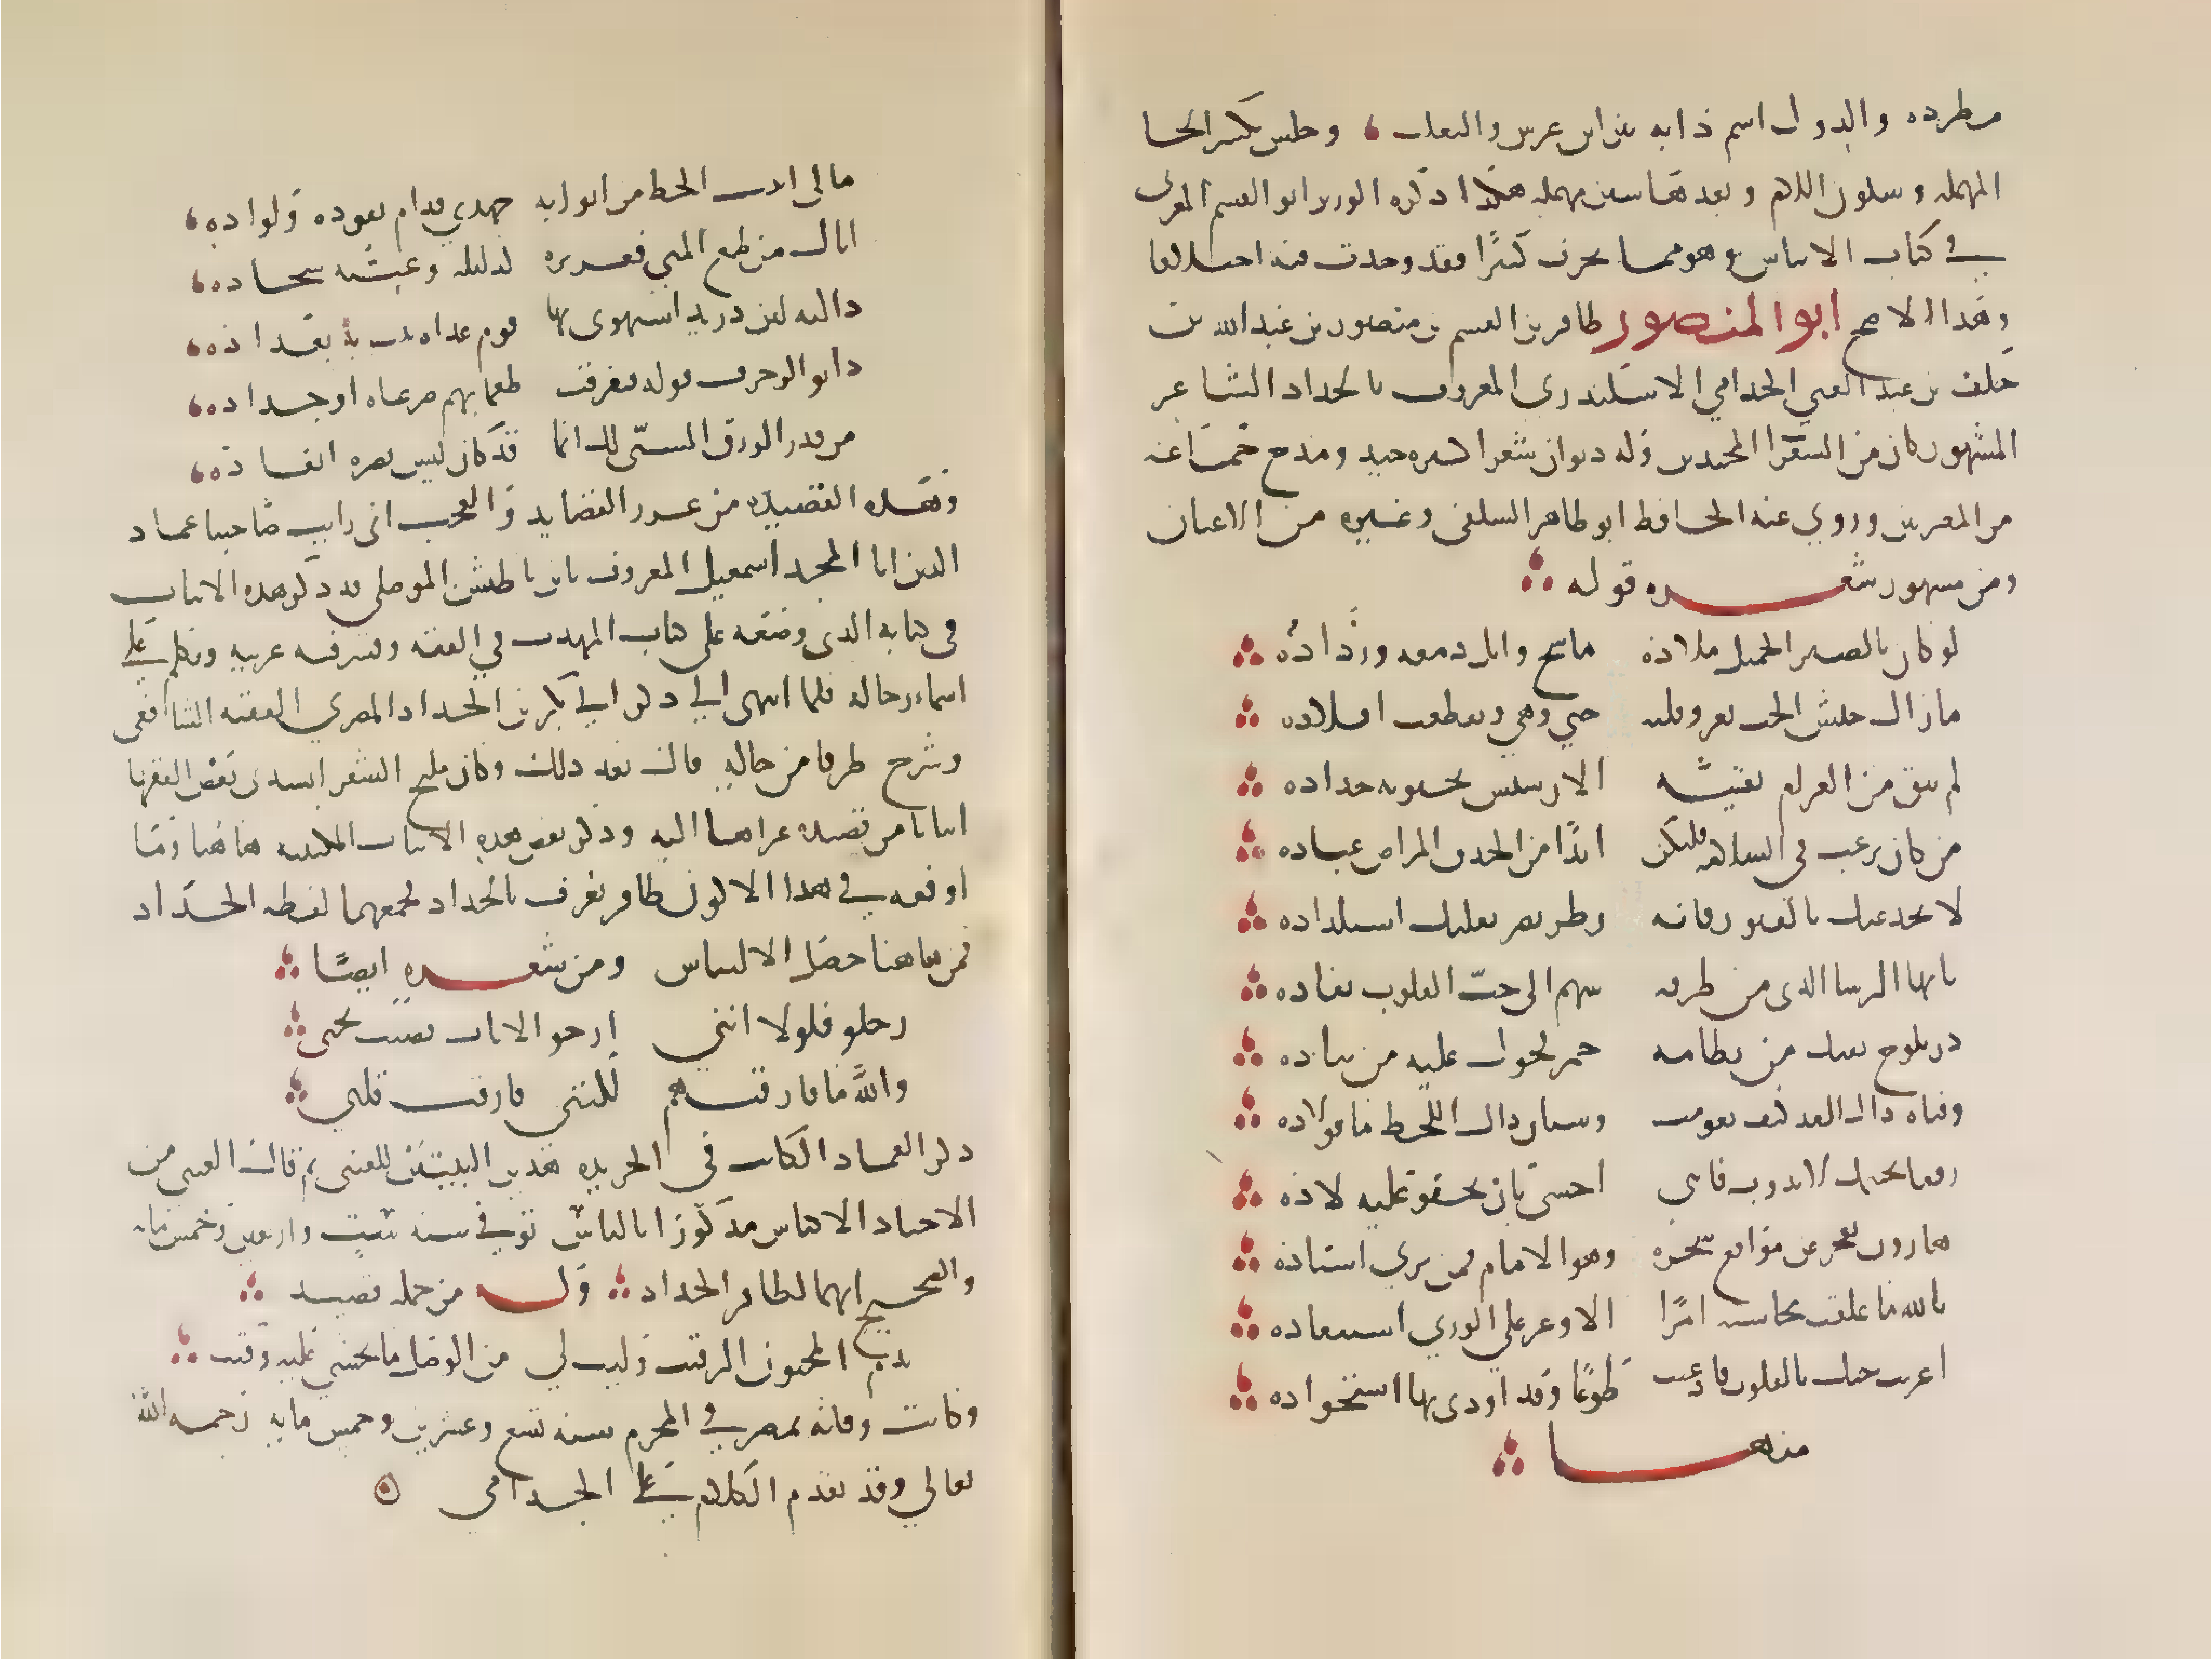 مطرده والدول اسم دابه بين ابن عرس والثعلب وحلس بكسر الحا
المهمله وسكون اللام وبعدها سين مهمله هكذا ذكره الوزير ابو القسم المغربي
في كتاب الايناس وهو مما يحرف كثيرًا فقد وجدت فيه اختلافا
وهذا الاصح ابو المنصور ظافر بن القسم بن منصور بن عبد الله بن
خلف بن عبد الغني الجدامي الاسكندري المعروف بالحداد الشاعر
المشهور كان من الشعرا المجيدين وله ديوان شعر اكثره جيد ومدح جماعة
من المصريين وروي عنه الحافظ ابو طاهر السلفي وغيره من الاعيان
ومن مشهور شعره قوله
لو كان بالصبر الجميل ملاذه ماسح وابل دمعه ورذاذه
مازال جيش الحب يغزو قلبه حتي وهي وتقطعت افلاذه
لم يبق من الغرام بقيه الا رسيس يحتويه جذاذه
من كان يرغب في السلامه فليكن ابدًا من الحدق المراض عياذه
لا يخدعنك بالفتور فانه نظر يضر بقلبك استلذاذه
يا ايها الرشا الذي من طرفه سهم الى حبّ القلوب نفاذه
در يلوح بفيك من نظامه خمر يجول عليه من نباذه
وقناه ذاك القد كيف تقومت وسنان ذاك اللحظ ما فولاذه
رفقا بجسمك لا يذوب فاني اخشى بان يجفو عليه لاذه
هاروت يعجز عن مواقع سحره وهو الامام فمن يري استاذه
بالله ما علقت محاسنك امرًا الا وعز علي الوري استنقاذه
اغريت حبك بالقلوب فاذعنت طوعًا وقد اودى بها استحواذه
منها
مالى اتيت الحظ من ابوابه جهدي فدام نفوره ولواذه
اياك من طمع المني فعزيزه كذليله وغنيّه شحاذه
داليه ابن دريد استهوى بها قوم غداه نبت به بغداذه
دانو الزخرف قوله فتفرقت طمعا بهم صرعاه او جذاذه
من قدر الرزق السنّي لك انما قد كان ليس يضره انفاذه
وهذه القصيده من غرر القصايد والعجب اني رايت صاحبنا عماد
الدين ابا المجد اسمعيل المعروف بابن باطيش الموصلي قد ذكر هذه الابيات
في كتابه الذي وضعه على كتاب المهذب في الفقه وفسر فيه غريبه وتكلم علي
اسماء رجاله فلما انتهى الي ذكر ابي بكر بن الحداد المصري الفقيه الشافعي
وشرح طرفا من حاله قال بعد ذلك وكان مليح الشعر انشدي بعض الفقها
ابياتا من قصيده عزاها اليه وذكر بعض هذه الابيات المكتوبه هاهنا وما
اوقعه في هذا الا كون ظافر يعرف بالحداد فجمعهما لفظه الحدّاد
فمن هاهنا حصل الالتباس ومن شعره ايضًا
رحلو فلولا انني ارجو الاياب قضيت نحبي
واللّه ما فارقتهم لكنني فارقت قلبي
ذكر العماد الكاتب في الخريده هذين البيتين للعيني ثم قال العيني من
الاجناد الاكياس مذكورًا بالباس توفي سنه ست واربعين وخمس مايه
والصحيح انهما لظافر الحداد وله من جمله قصيده
يذم المحبون الرقيب وليت لي من الوصل ما يخشي عليه رقيب
وكانت وفاته بمصر في المحرم سنه تسع وعشرين وخمس مايه رحمه الله
تعالي وقد تقدم الكلام علي الجدامي